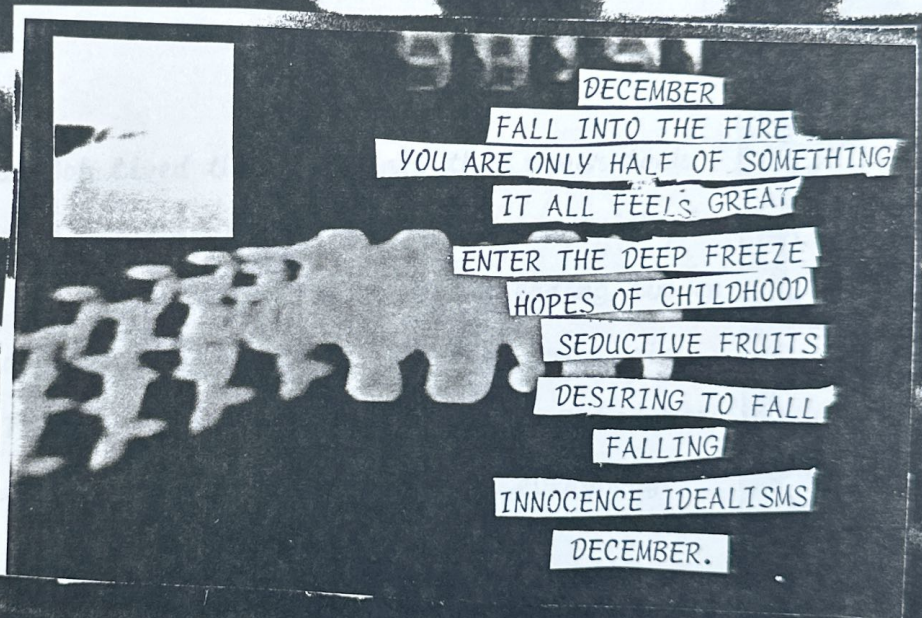 DECEMBER
FALL INTO THE FIRE
YOU ARE ONLY HALF OF SOMETHING
IT ALL FEELS GREAT
ENTER THE DEEP FREEZE
HOPES OF CHILDHOOD
SEDUCTIVE FRUITS
DESIRING TO FALL
FALLING
INNOCENCE IDEALISMS
DECEMBER.